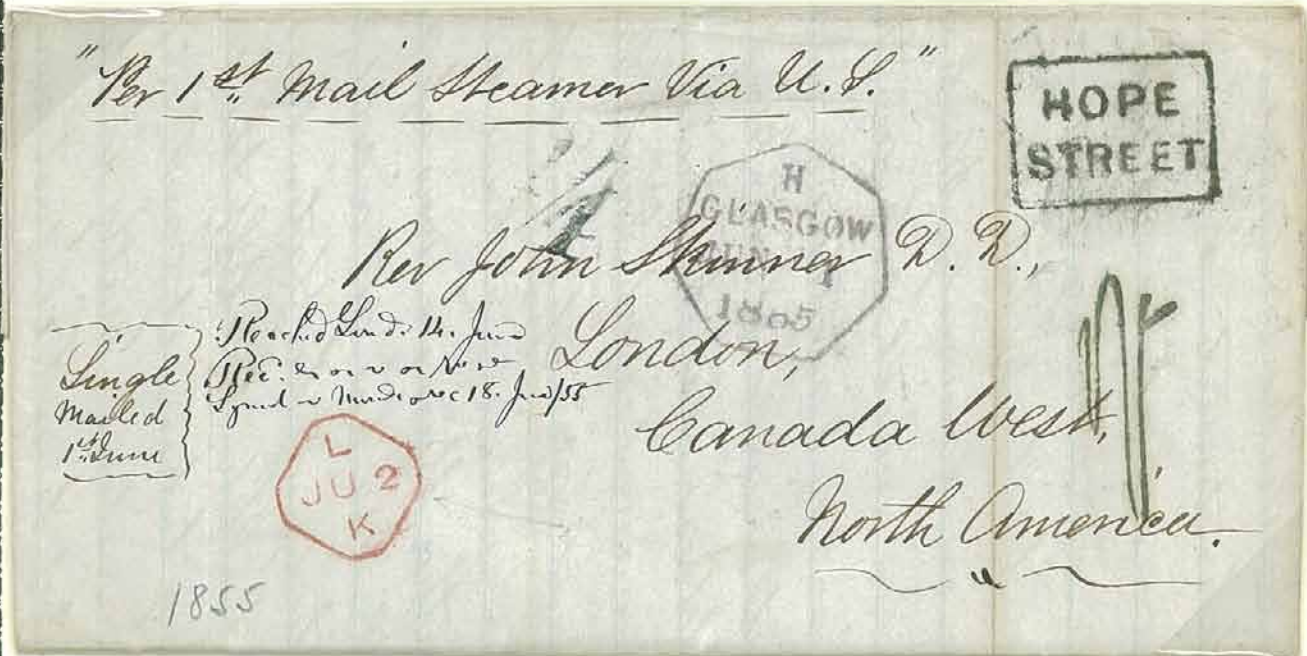 "Per 1st. Mail Steamer Via U.S."
HOPE
STREET
H
GLASGOW
JUN 1
1855
Rev John Skinner D.D.,
London,
Canada West,
North America.
Single
Mailed
1st June
Reached Lond. 14. June
Rec.
18. June/55
L
JU 2
K
1855